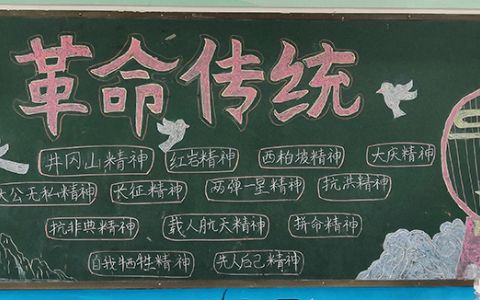 革命传统
井冈山精神 红岩精神 西柏坡精神 大庆精神
大公无私精神 长征精神 两弹一星精神 抗洪精神
抗非典精神 载人航天精神 拼命精神
自我牺牲精神 先人后己精神